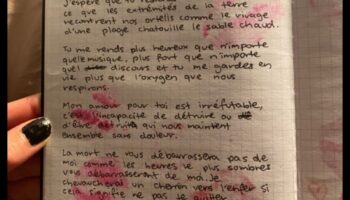 J'espère que tu
ce que les extrémités de la terre
rencontrent nos orteils comme le rivage
d'une plage chatouille le sable chaud.
Tu me rends plus heureux que n'importe
quelle musique, plus fort que n'importe
quel discours et tu me gardes en
vie plus que l'oxygen que nous
respirons.
Mon amour pour toi est irréfutable,
c'est l'incapacité de détruire ou
d'être détruits qui nous maintient
ensemble sans douleur.
La mort ne nous débarrassera pas de
moi comme les heures le plus sombres
vous débarrasseront de moi. Je
chevaucherai un cheron vers l'enfer si
cela signifie ne pas te quitter